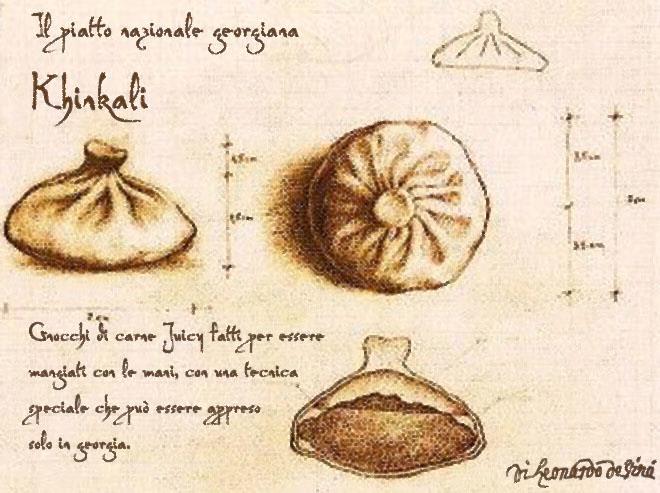 Il piatto nazionale georgiana
Khinkali
7 cm
Gnocchi di carne Juicy fatti per essere
mangiati con le mani, con una tecnica
speciale che può essere appreso
solo in georgia.